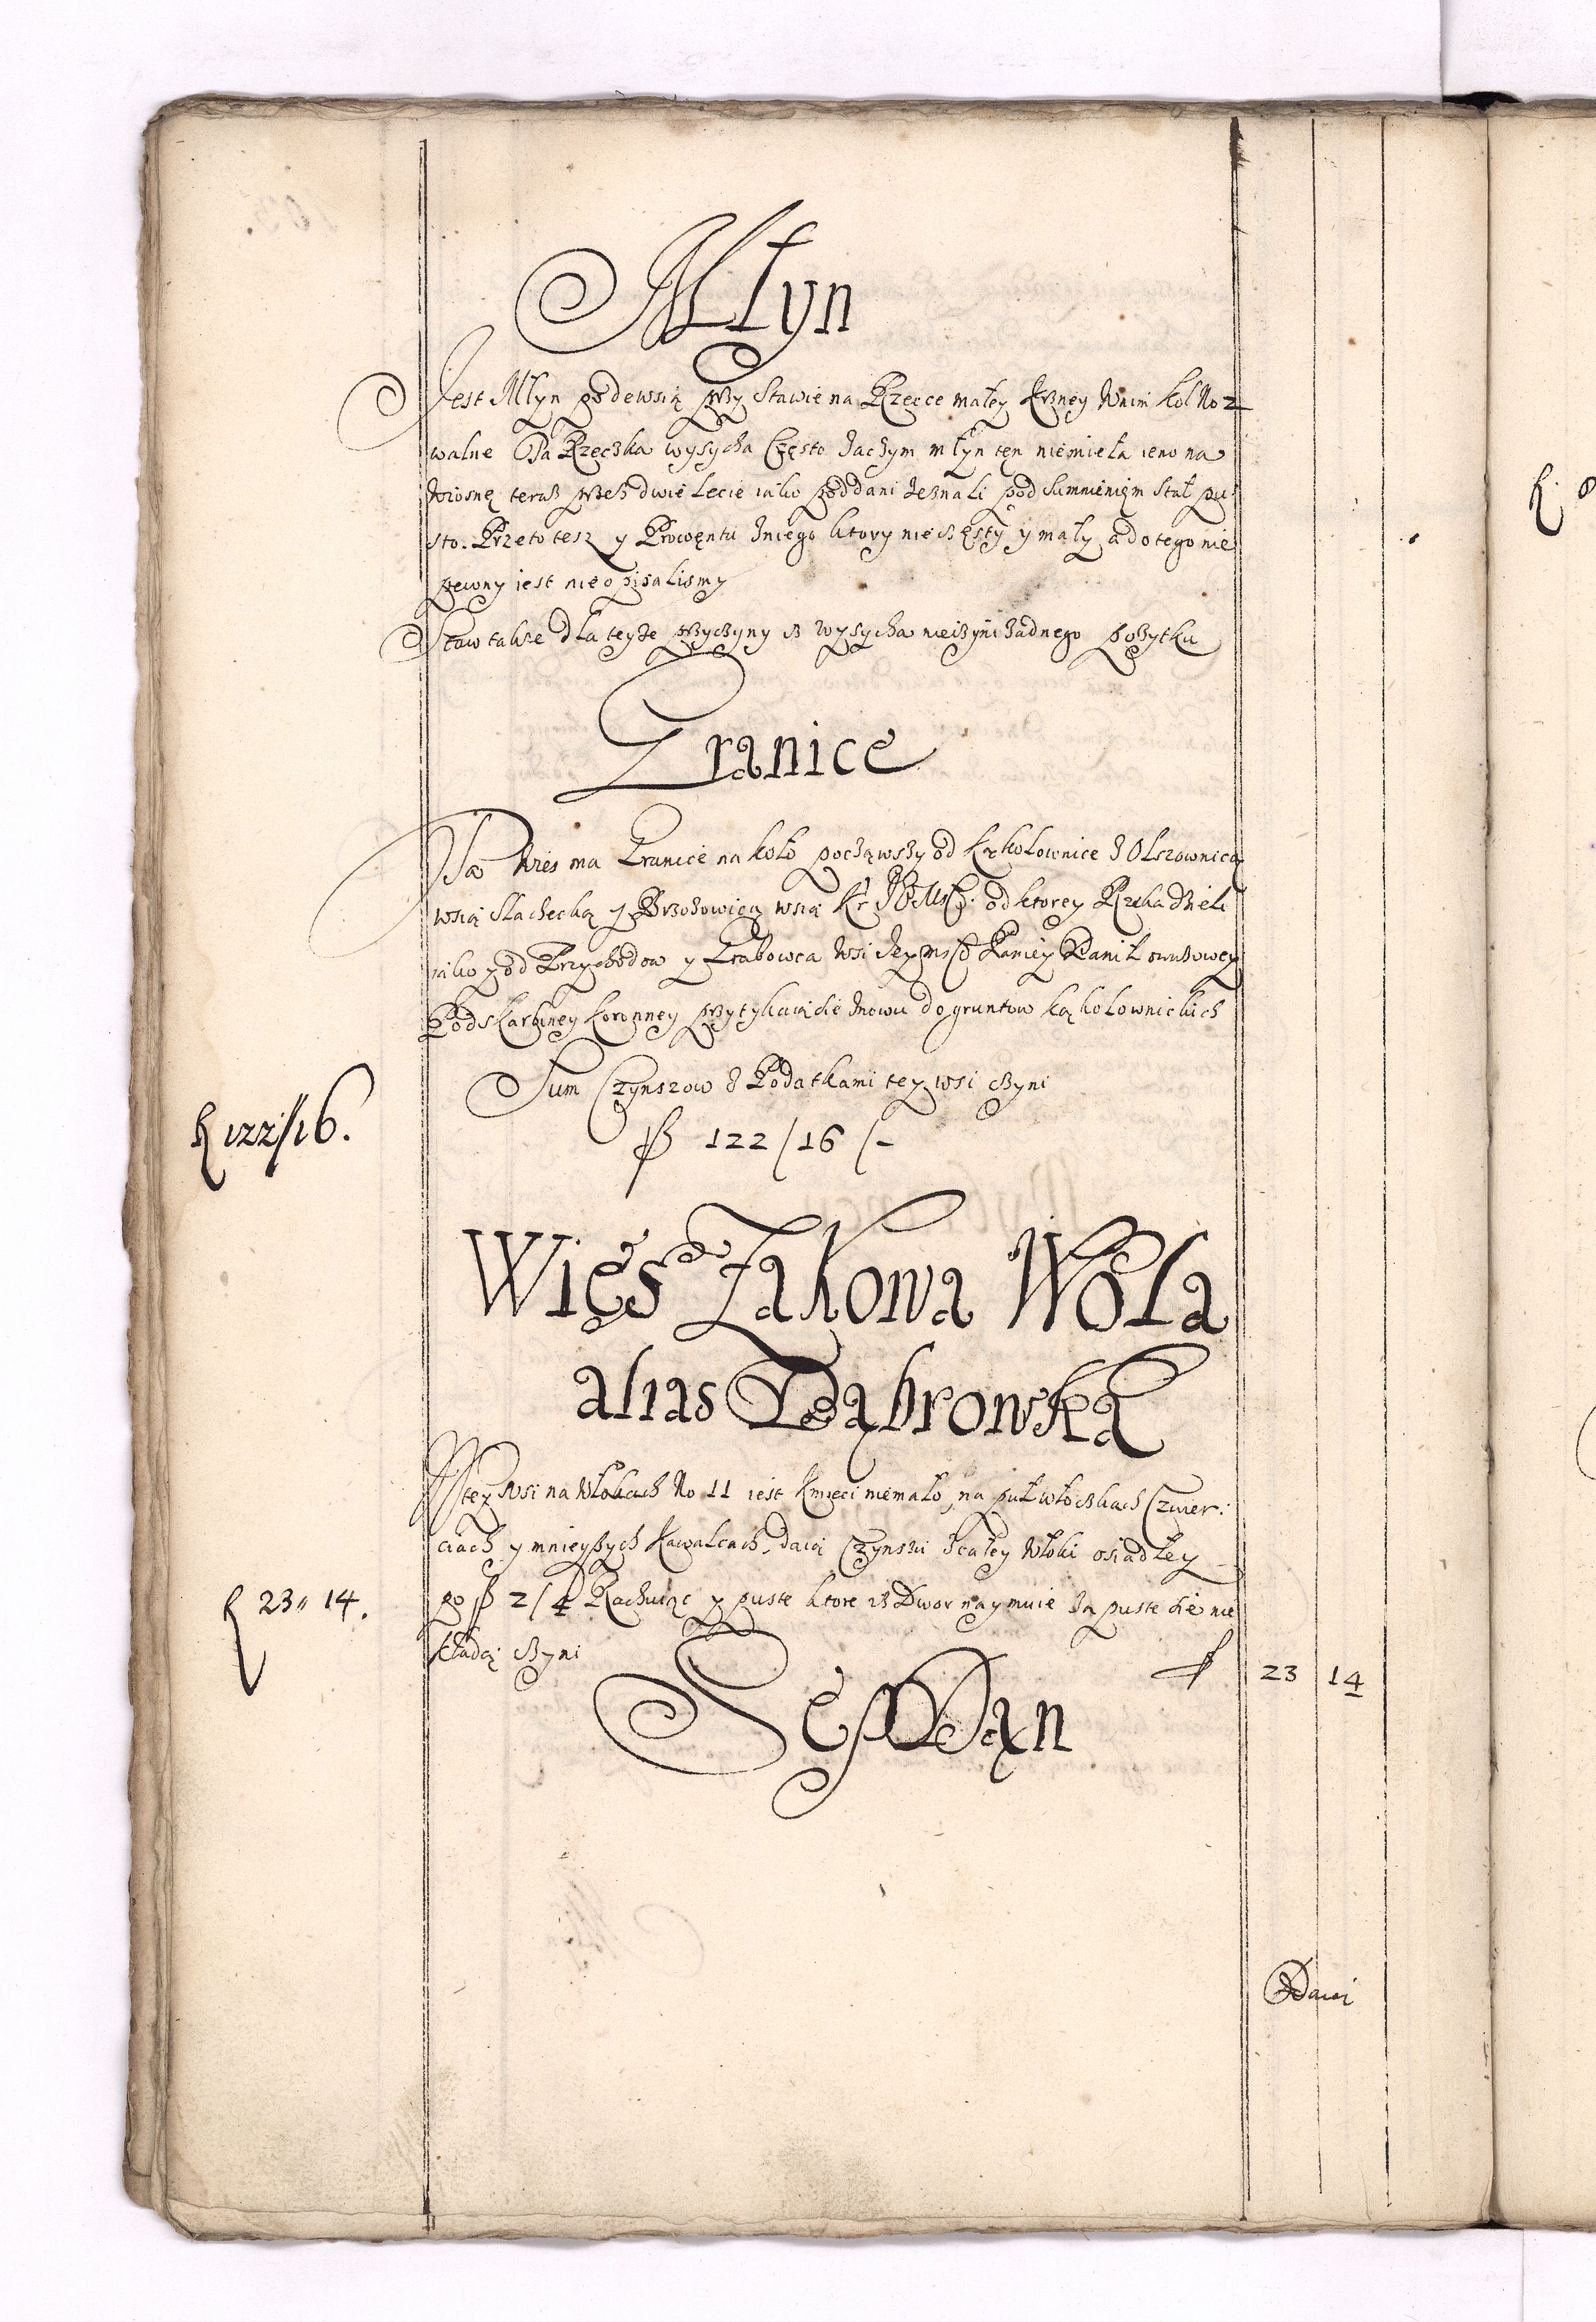 Młyn
Jest Młyn podewsią przy Stawie na Rzecce małey Krzney Wnim kol No 2
walne Ta Rzeczka wysycha Często Zaczym młyn ten niemiela ieno na
Wiosnę teraz przez dwie Lecie iako poddani Zeznali pod Sumnienięm Stał pu
sto. Przeto tesz y Prowęntu Zniego ktory nieczęsty y mały a do tego nie
pewny iest nie opisalismy
Staw także dla teyże przyczyny isz wysycha nieczyni żadnego pożytku
Granice
Ta Wies ma Granice na koło począwszy od Kąkolownice Z Olszownicą
wsią Slachecką y Brzozowicą wsią Kr JE Mśći. od ktorey Rzeka Dzieli
iako y od Przychodow y Grabowca Wsi Jey mśći Paniey Daniłowiczowey
Podskarbiney Koronney przytykaiąc sie Znowu do gruntow kąkolownickich
Sum Czynszow Z Podatkami tey wsi czyni
R 122//16.
f 122/16/-
Więs Zakowa Wola
alias Dąbrowka
W tey Wsi na Włokach No 11 iest Kmieci niemało, na puł włoczkach Czwier:
ciach y mnieyszych Kawalcach, daią Czynszu Z całey Włoki osiadłey
R 23// 14.
po f 2/4 Rachuiąc y puste ktore isz Dwor naymuie Za puste sie nie
kładą czyni f 23 14
Sęp Dan
Daią